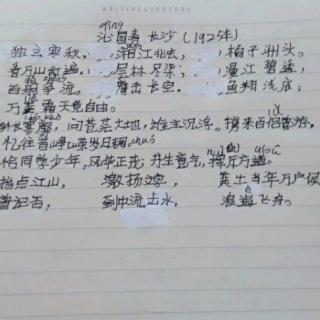 WRITINGSUBSTORY
qìng
沁园春 长沙 (1925年)
独立寒秋, 湘江北去, 橘子洲头。
看万山红遍, 层林尽染; 漫江碧透,
百舸争流。 鹰击长空, 鱼翔浅底,
万类霜天竞自由。
寥廓, 问苍茫大地, 谁主沉浮。携来百侣曾游,
忆往昔峥嵘岁月稠。
恰同学少年, 风华正茂; 书生意气, 挥斥方遒。
指点江山, 激扬文字, 粪土当年万户侯
曾记否, 到中流击水, 浪遏飞舟。